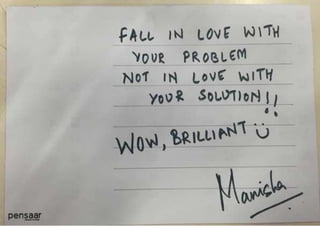 FALL IN LOVE WITH
YOUR PROBLEM
NOT IN LOVE WITH
YOUR SOLUTION!!
WOW, BRILLIANT
Manisha
pensaar